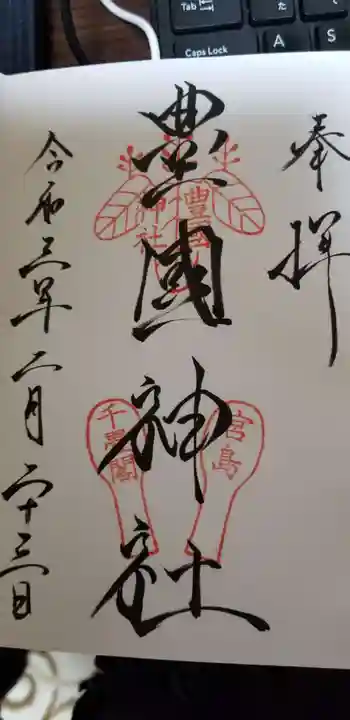 奉拝
豊國神社
豊國
神社
宮島
千畳閣
令和三年二月二十三日
Tab
Caps Lock
A
S
た